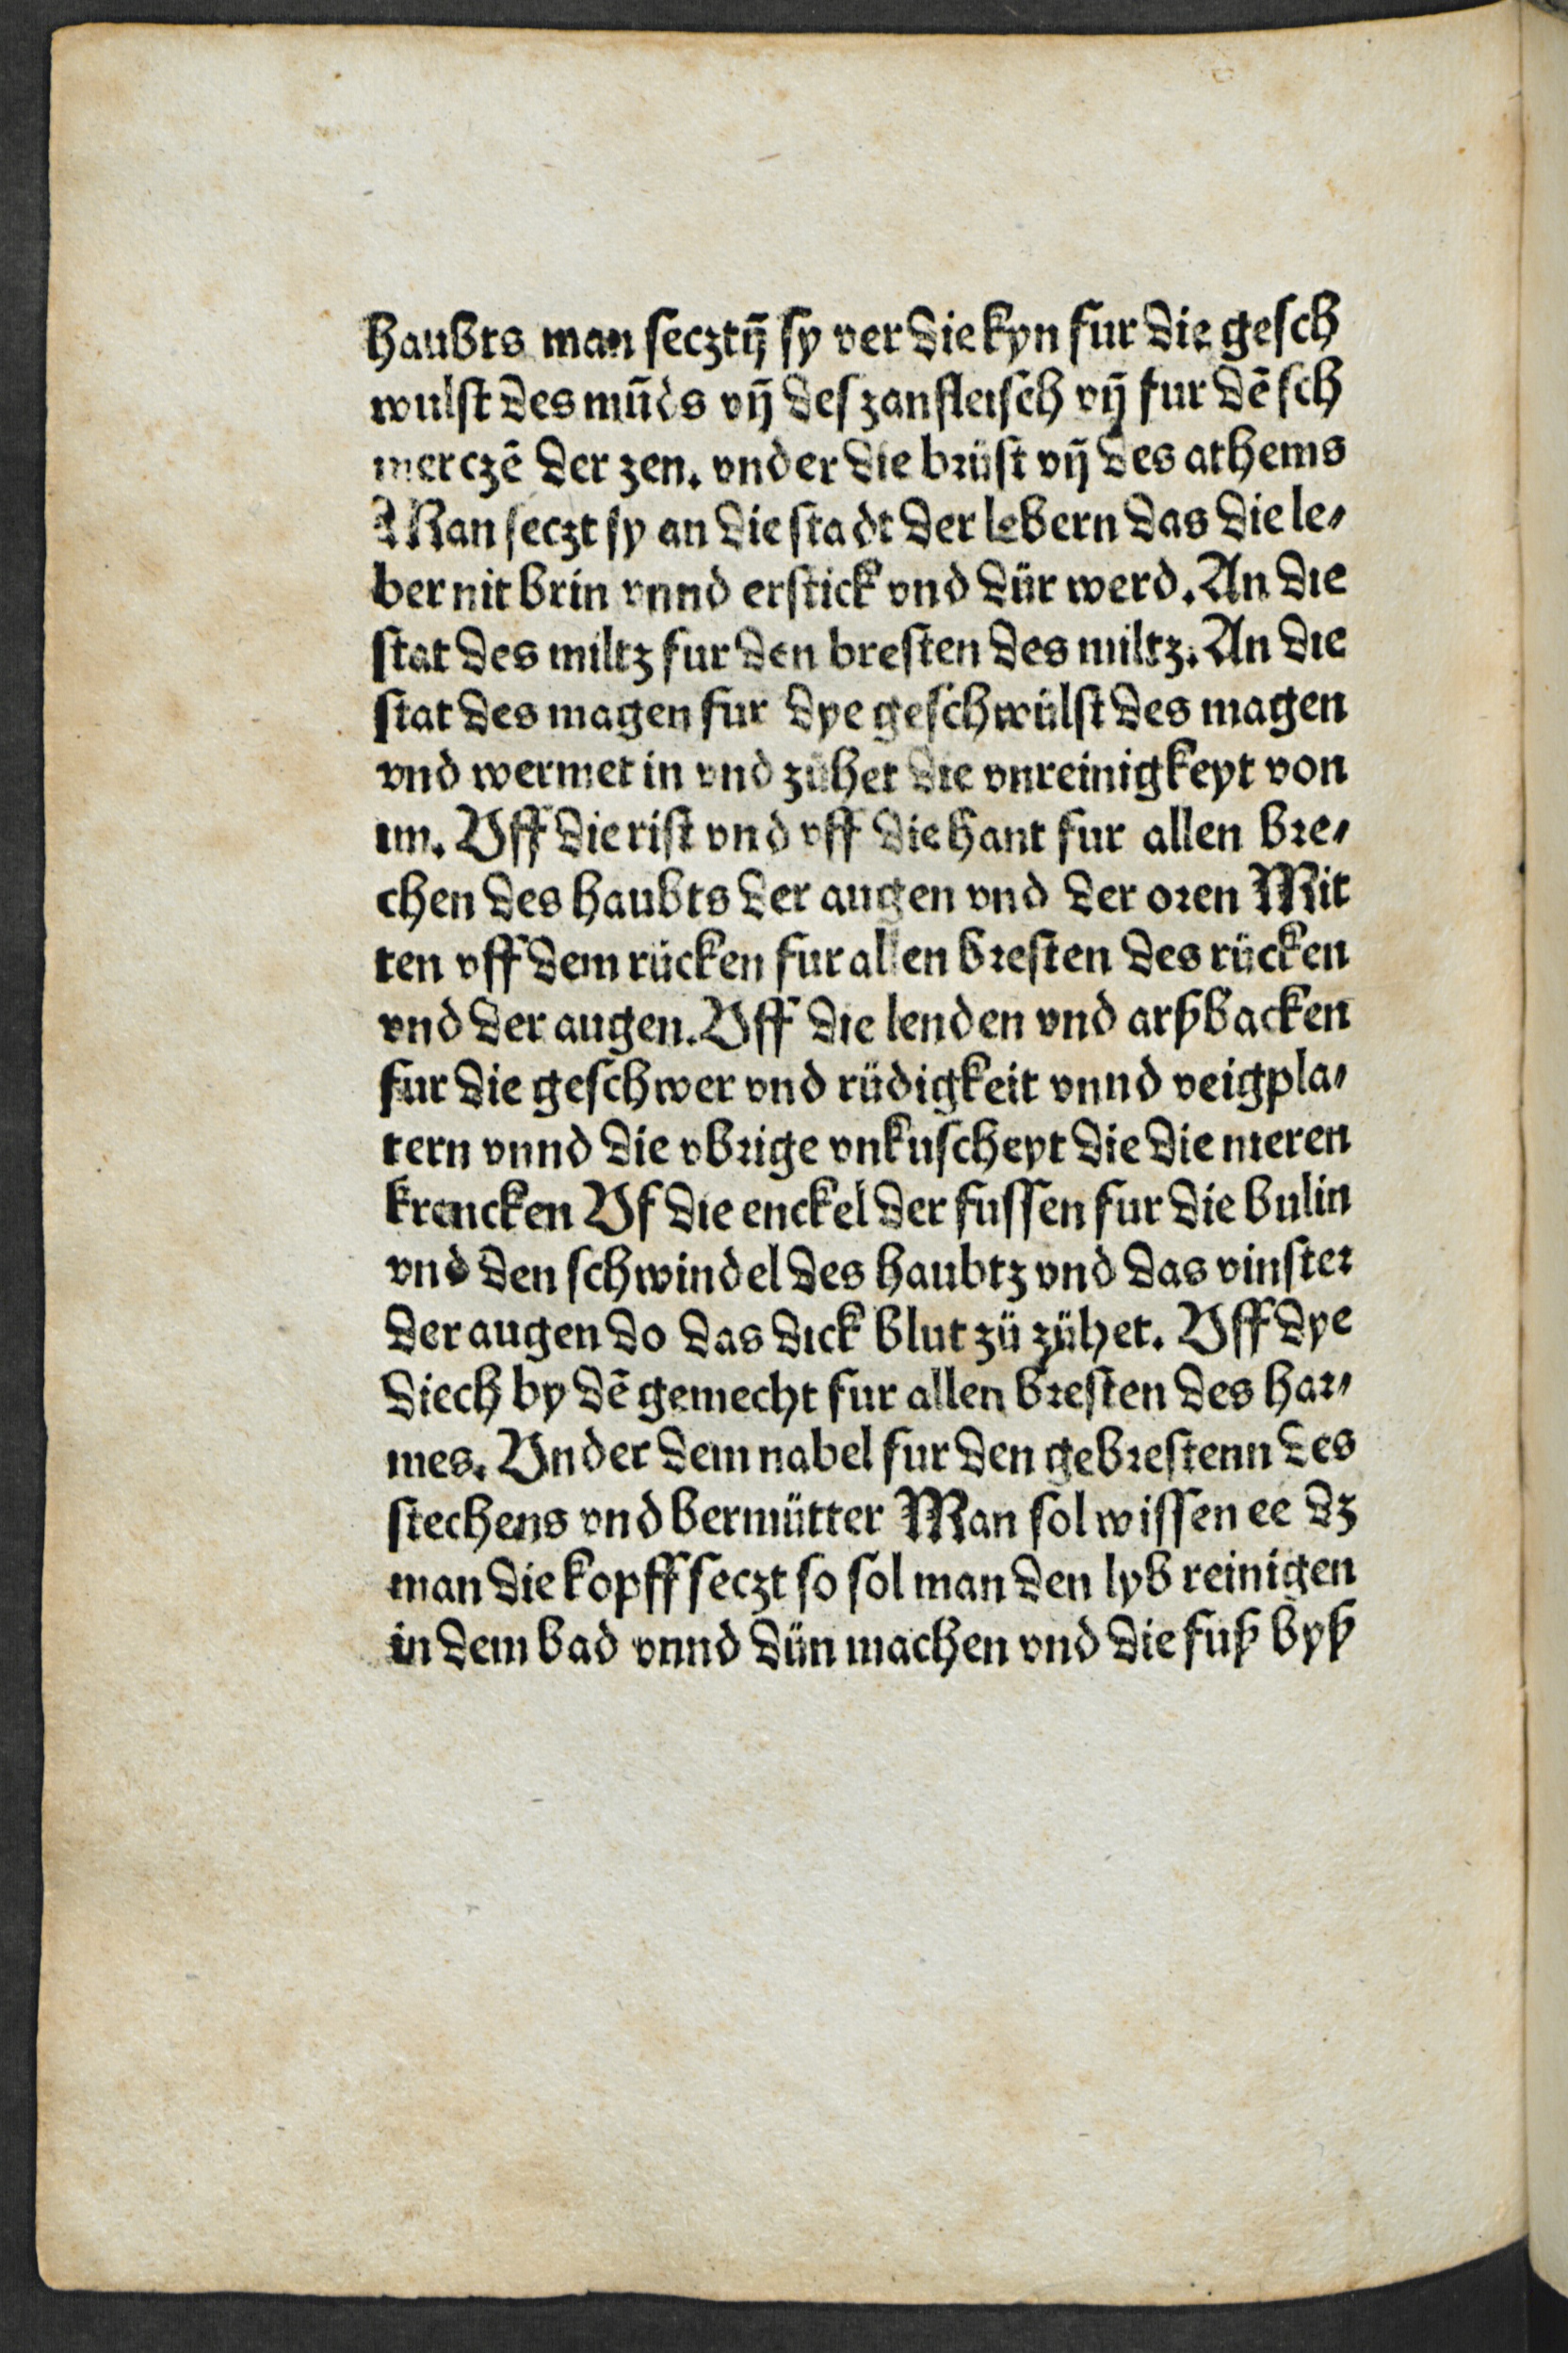 haubts man secztÿ sy ver die kyn fur die gesch
wulst des mūds vñ des zanfleisch vñ fur dē sch
merczē der zen. vnder die brüst vñ des athems
Man seczt sy an die stadt der lebern das die le⸗
ber nit brin vnnd erstick vnd dür werd. An die
stat des miltz fur den bresten des miltz. An die
stat des magen fur dye geschwülst des magen
vnd wermet in vnd zühet die vnreinigkeyt von
im. Vff die rist vnd vff die hant fur allen bre⸗
chen des haubts der augen vnd der oren Mit
ten vff dem rücken fur allen bresten des rücken
vnd der augen. Vff die lenden vnd arßbacken
fur die geschwer vnd rüdigkeit vnnd veigpla⸗
tern vnnd die vbrige vnkuscheyt die die nieren
krencken Vf die enckel der fussen fur die bulin
vnd den schwindel des haubtz vnd das vinster
der augen do das dick blut zü zühet. Vff dye
diech by dē gemecht fur allen bresten des har⸗
mes. Vnder dem nabel fur den gebrestenn des
stechens vnd bermütter Man sol wissen ee dz
man die kopff seczt so sol man den lyb reinigen
in dem bad vnnd dün machen vnd die fuß byß